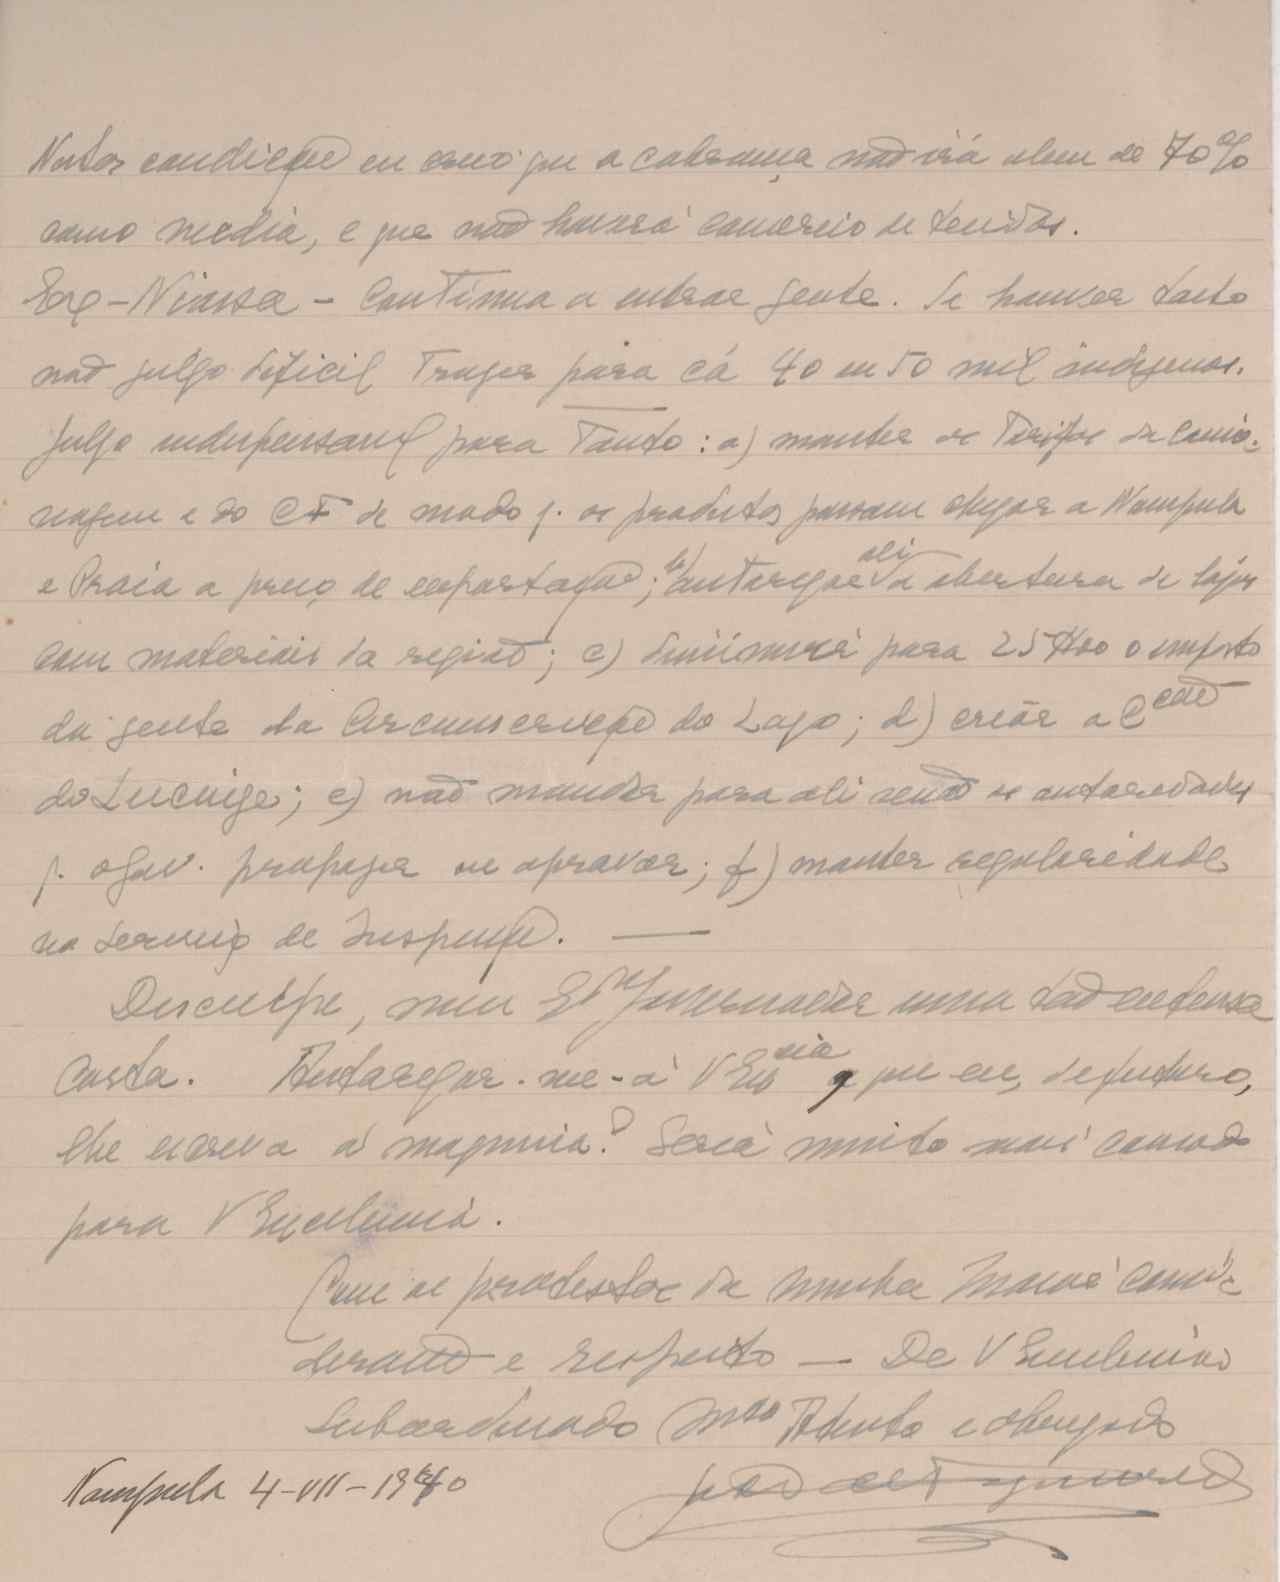 Nestas condições eu creio que a cobrança não irá alem de 70%
como media, e que não haverá comercio de tecidos.
Ex-Niassa - Continua a entrar gente. Se houver tacto
não julgo dificil trazer para cá 40 ou 50 mil indigenas.
Julgo indispensavel para tanto: a) manter as tarifas da camio-
nagem e do CF de modo q. os produtos possam chegar a Nampula
e Praia a preço de exportação; b) autorizar ali a abertura de lojas
com materiais da região; c) diminuir para 25$00 o imposto
da gente da Circunscrição do Lago; d) criar a Cção
do; e) não mandar para ali senão as autoridades
q. o Gov. propozer ou aprovar; f) manter regularidade
no serviço de Inspeção.
Desculpe, meu Snr Governador uma tão extensa
carta. Autorizar-me-á V Excia a que eu, de futuro,
lhe escreva á maquina? Será muito mais comodo
para V Excelencia.
Com os protestos da minha maior consi-
deração e respeito — De V Excelencia
Subordinado Mto Atento e obrigado
Nampula 4-VII-1940